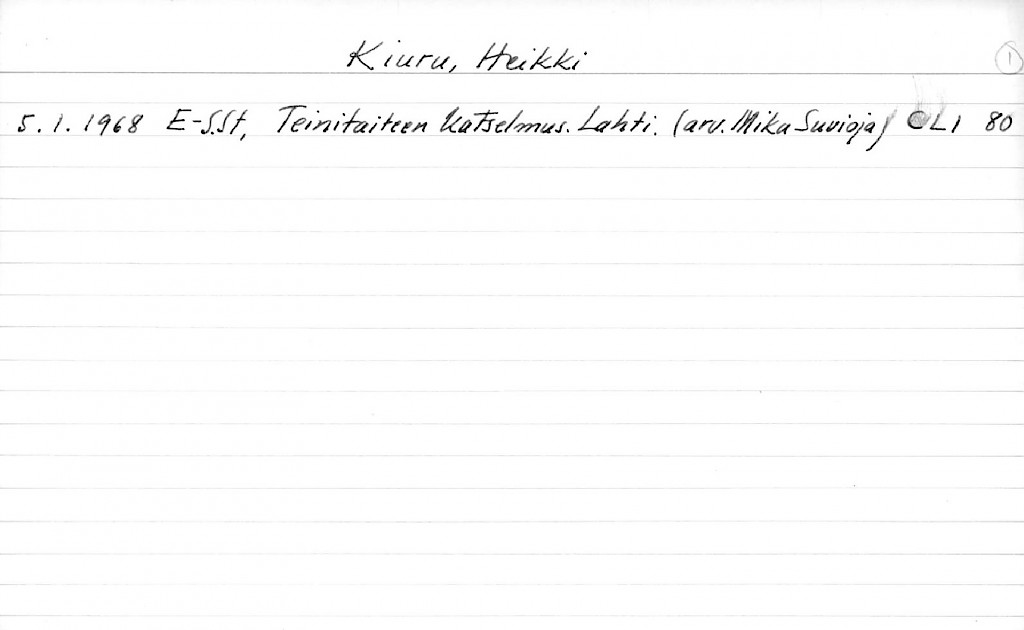 Kiuru, Heikki
1
5.1.1968 E-S.St, Teinitaiteen Katselmus. Lahti. (arv. Mika Suvioja) CLI 80